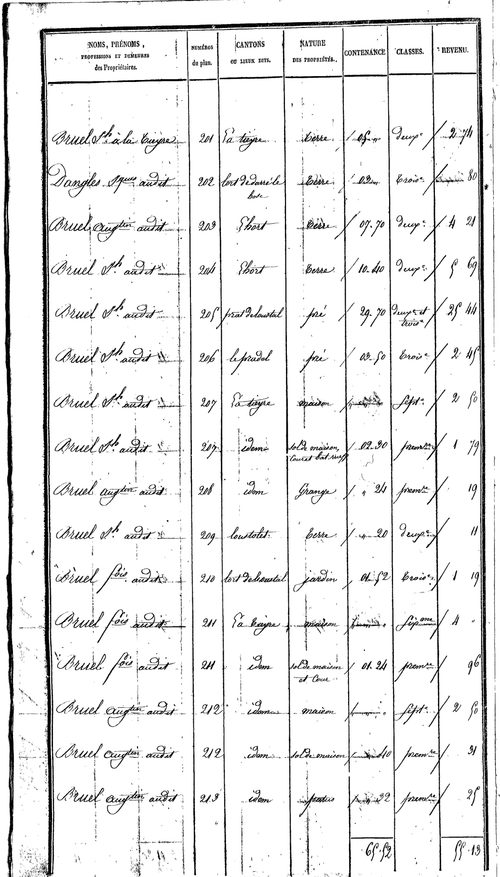 NOMS, PRÉNOMS, PROFESSIONS ET DEMEURES des Propriétaires. NUMÉROS du plan. CANTONS OU LIEUX DITS. NATURE DES PROPRIÉTÉS. CONTENANCE CLASSES. REVENU.
Bruel Ph à la Tuyre 201 La tuyre terre 05 deuxe 2 74
Dangles audit 202 terre 03 troise 80
Bruel Augtin audit 203 Lhort terre 07.70 deuxe 4 21
Bruel Ph audit 204 Lhort terre 10.40 deuxe 5 69
Bruel Ph audit 205 prat de loustal pré 29.70 deuxe et troise 25 44
Bruel Ph audit 206 le pradal pré 03.50 troise 2 45
Bruel Ph audit 207 La tuyre maison sept. 2 50
Bruel Ph audit 207 idem sol de maison, 02.30 premre 1 79
Bruel Augtin audit 208 idem Grange 24 premre 19
Bruel Ph audit 209 terre 20 deuxe 11
Bruel fois audit 210 lort de loustal jardin 01.52 troise 1 19
Bruel fois audit 211 La tuyre maison 4
Bruel fois audit 211 idem sol de maison et cour 01.24 premre 96
Bruel Augtin audit 212 idem maison sept. 2 50
Bruel Augtin audit 212 idem sol de maison 40 premre 31
Bruel Augtin audit 213 idem patus 32 premre 25
65.52 55.13